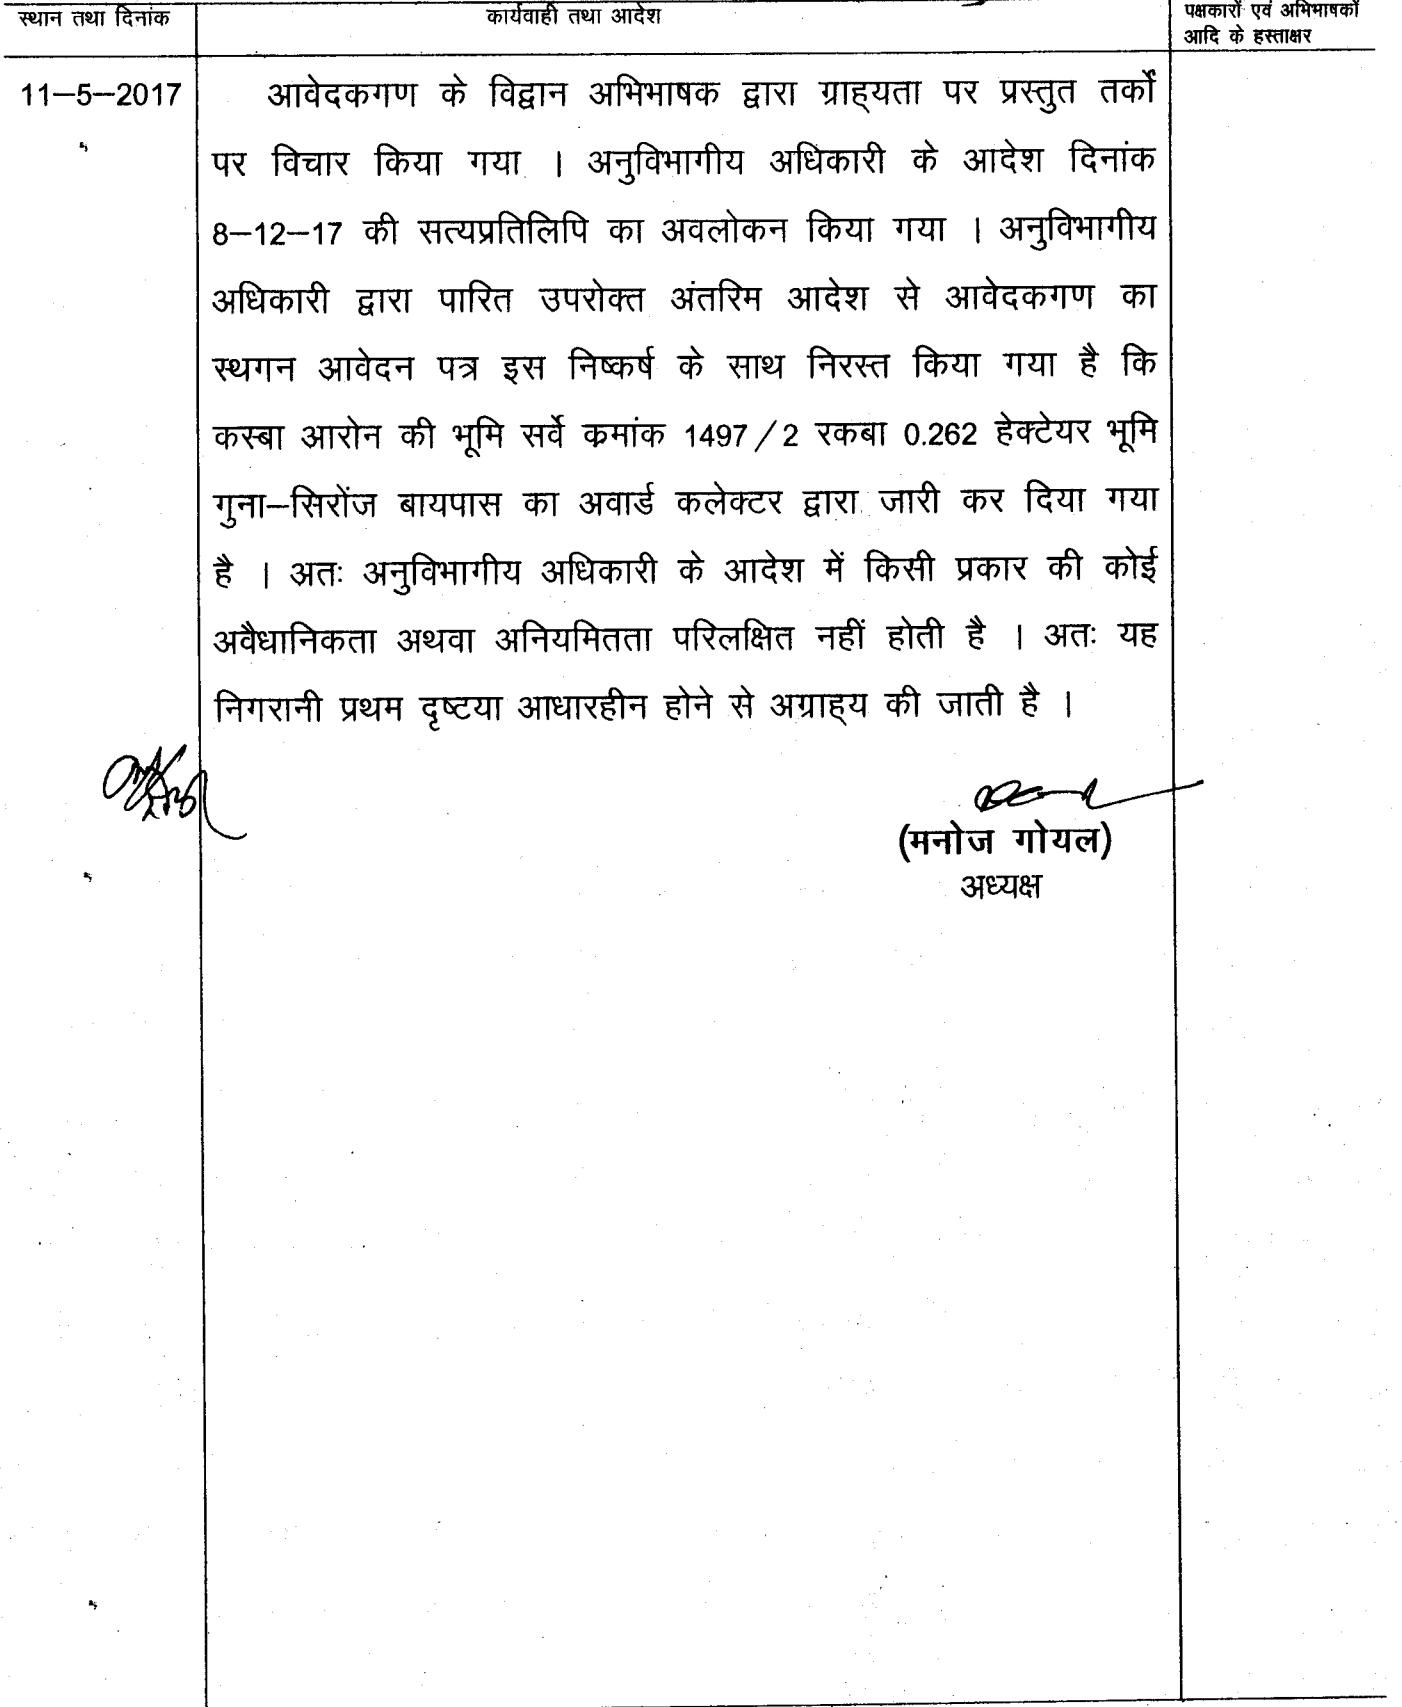 स्थान तथा दिनांक
कार्यवाही तथा आदेश
पक्षकारों एवं अभिभाषकों
आदि के हस्ताक्षर
11–5–2017
आवेदकगण के विद्वान अभिभाषक द्वारा ग्राह्यता पर प्रस्तुत तर्कों
पर विचार किया गया । अनुविभागीय अधिकारी के आदेश दिनांक
8–12–17 की सत्यप्रतिलिपि का अवलोकन किया गया । अनुविभागीय
अधिकारी द्वारा पारित उपरोक्त अंतरिम आदेश से आवेदकगण का
स्थगन आवेदन पत्र इस निष्कर्ष के साथ निरस्त किया गया है कि
कस्बा आरोन की भूमि सर्वे कमांक 1497/2 रकबा 0.262 हेक्टेयर भूमि
गुना–सिरोंज बायपास का अवार्ड कलेक्टर द्वारा जारी कर दिया गया
है । अतः अनुविभागीय अधिकारी के आदेश में किसी प्रकार की कोई
अवैधानिकता अथवा अनियमितता परिलक्षित नहीं होती है । अतः यह
निगरानी प्रथम दृष्टया आधारहीन होने से अग्राह्य की जाती है ।
(मनोज गोयल)
अध्यक्ष